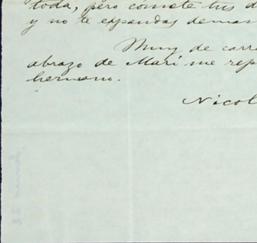 toda, pero comete tus d
y no te expandas demas
Muy de carre
abrazo de Mari me rep
hermano.
Nicol